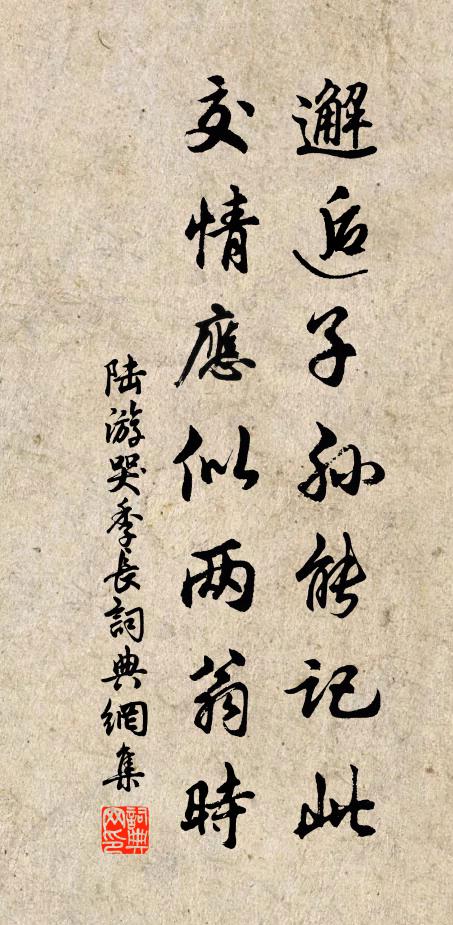 邂逅子孫能記此
交情應似两翁時
陆游哭季長詞典網集
詞典网印